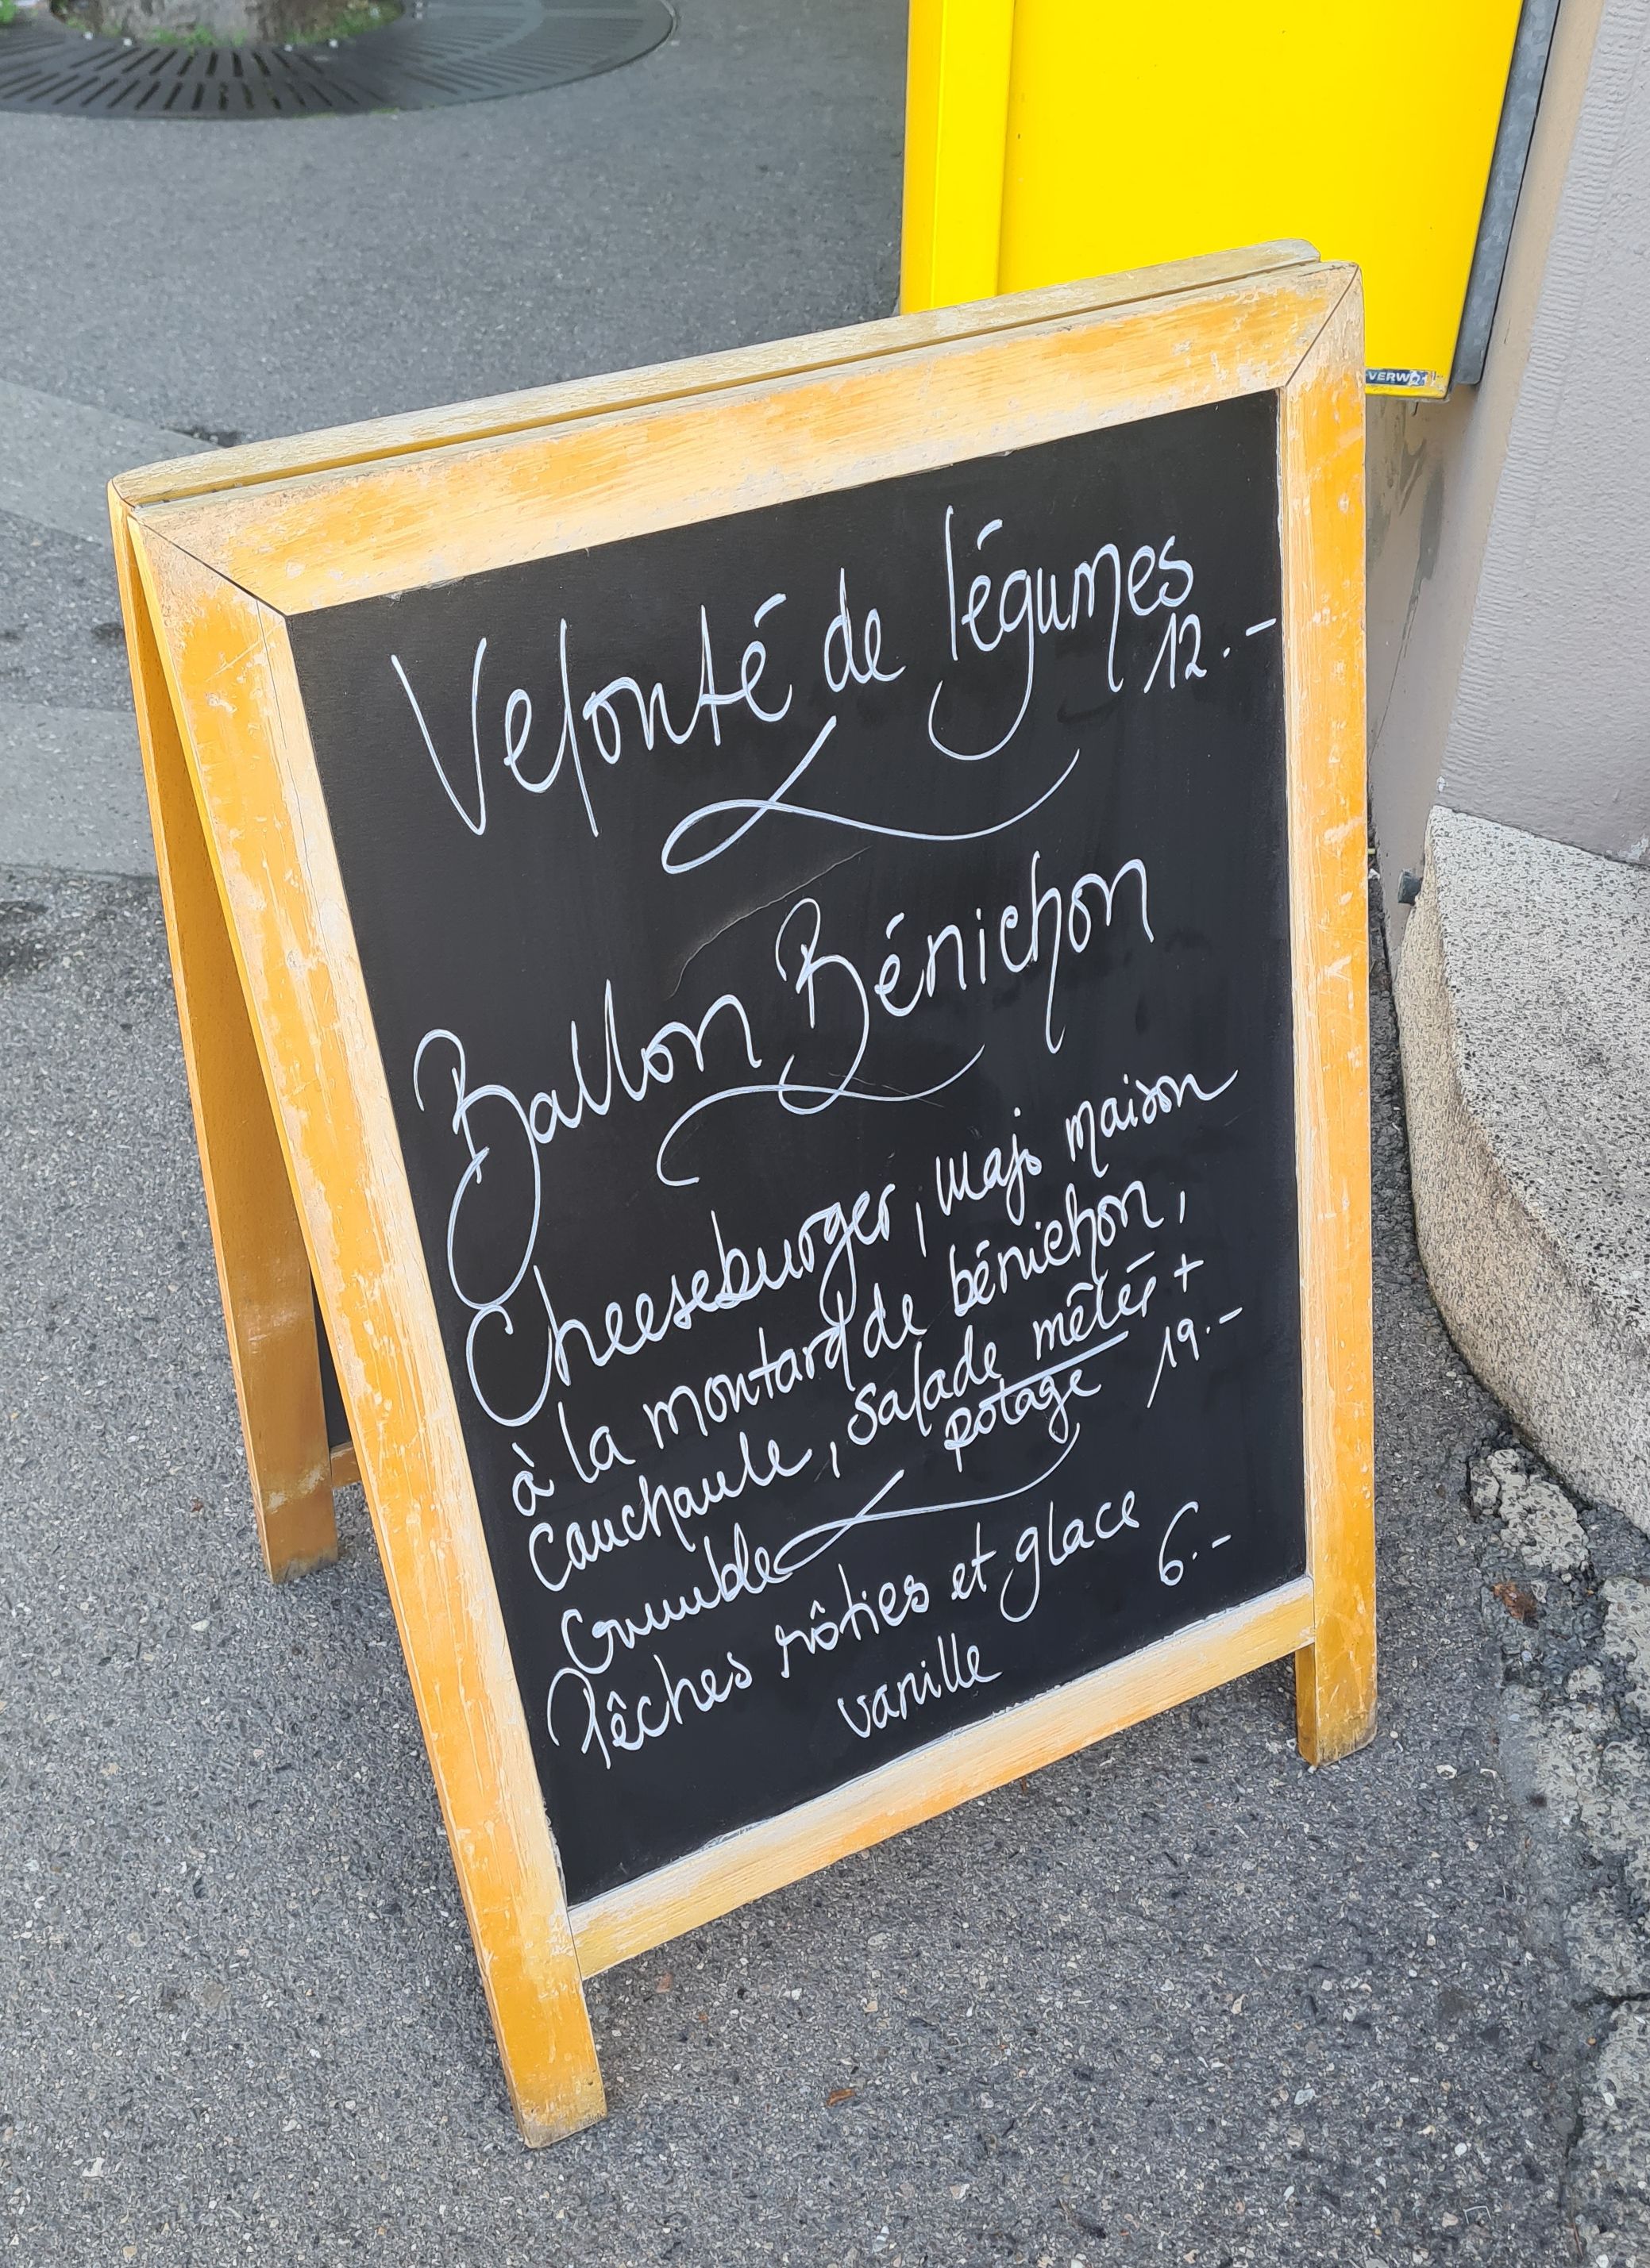 Velouté de légumes
12.-
Ballon Bénichon
Cheeseburger, majo maison
à la moutarde de bénichon,
cuchaule, salade mêlée +
potage 19.-
Crumble
Pêches rôties et glace
vanille 6.-